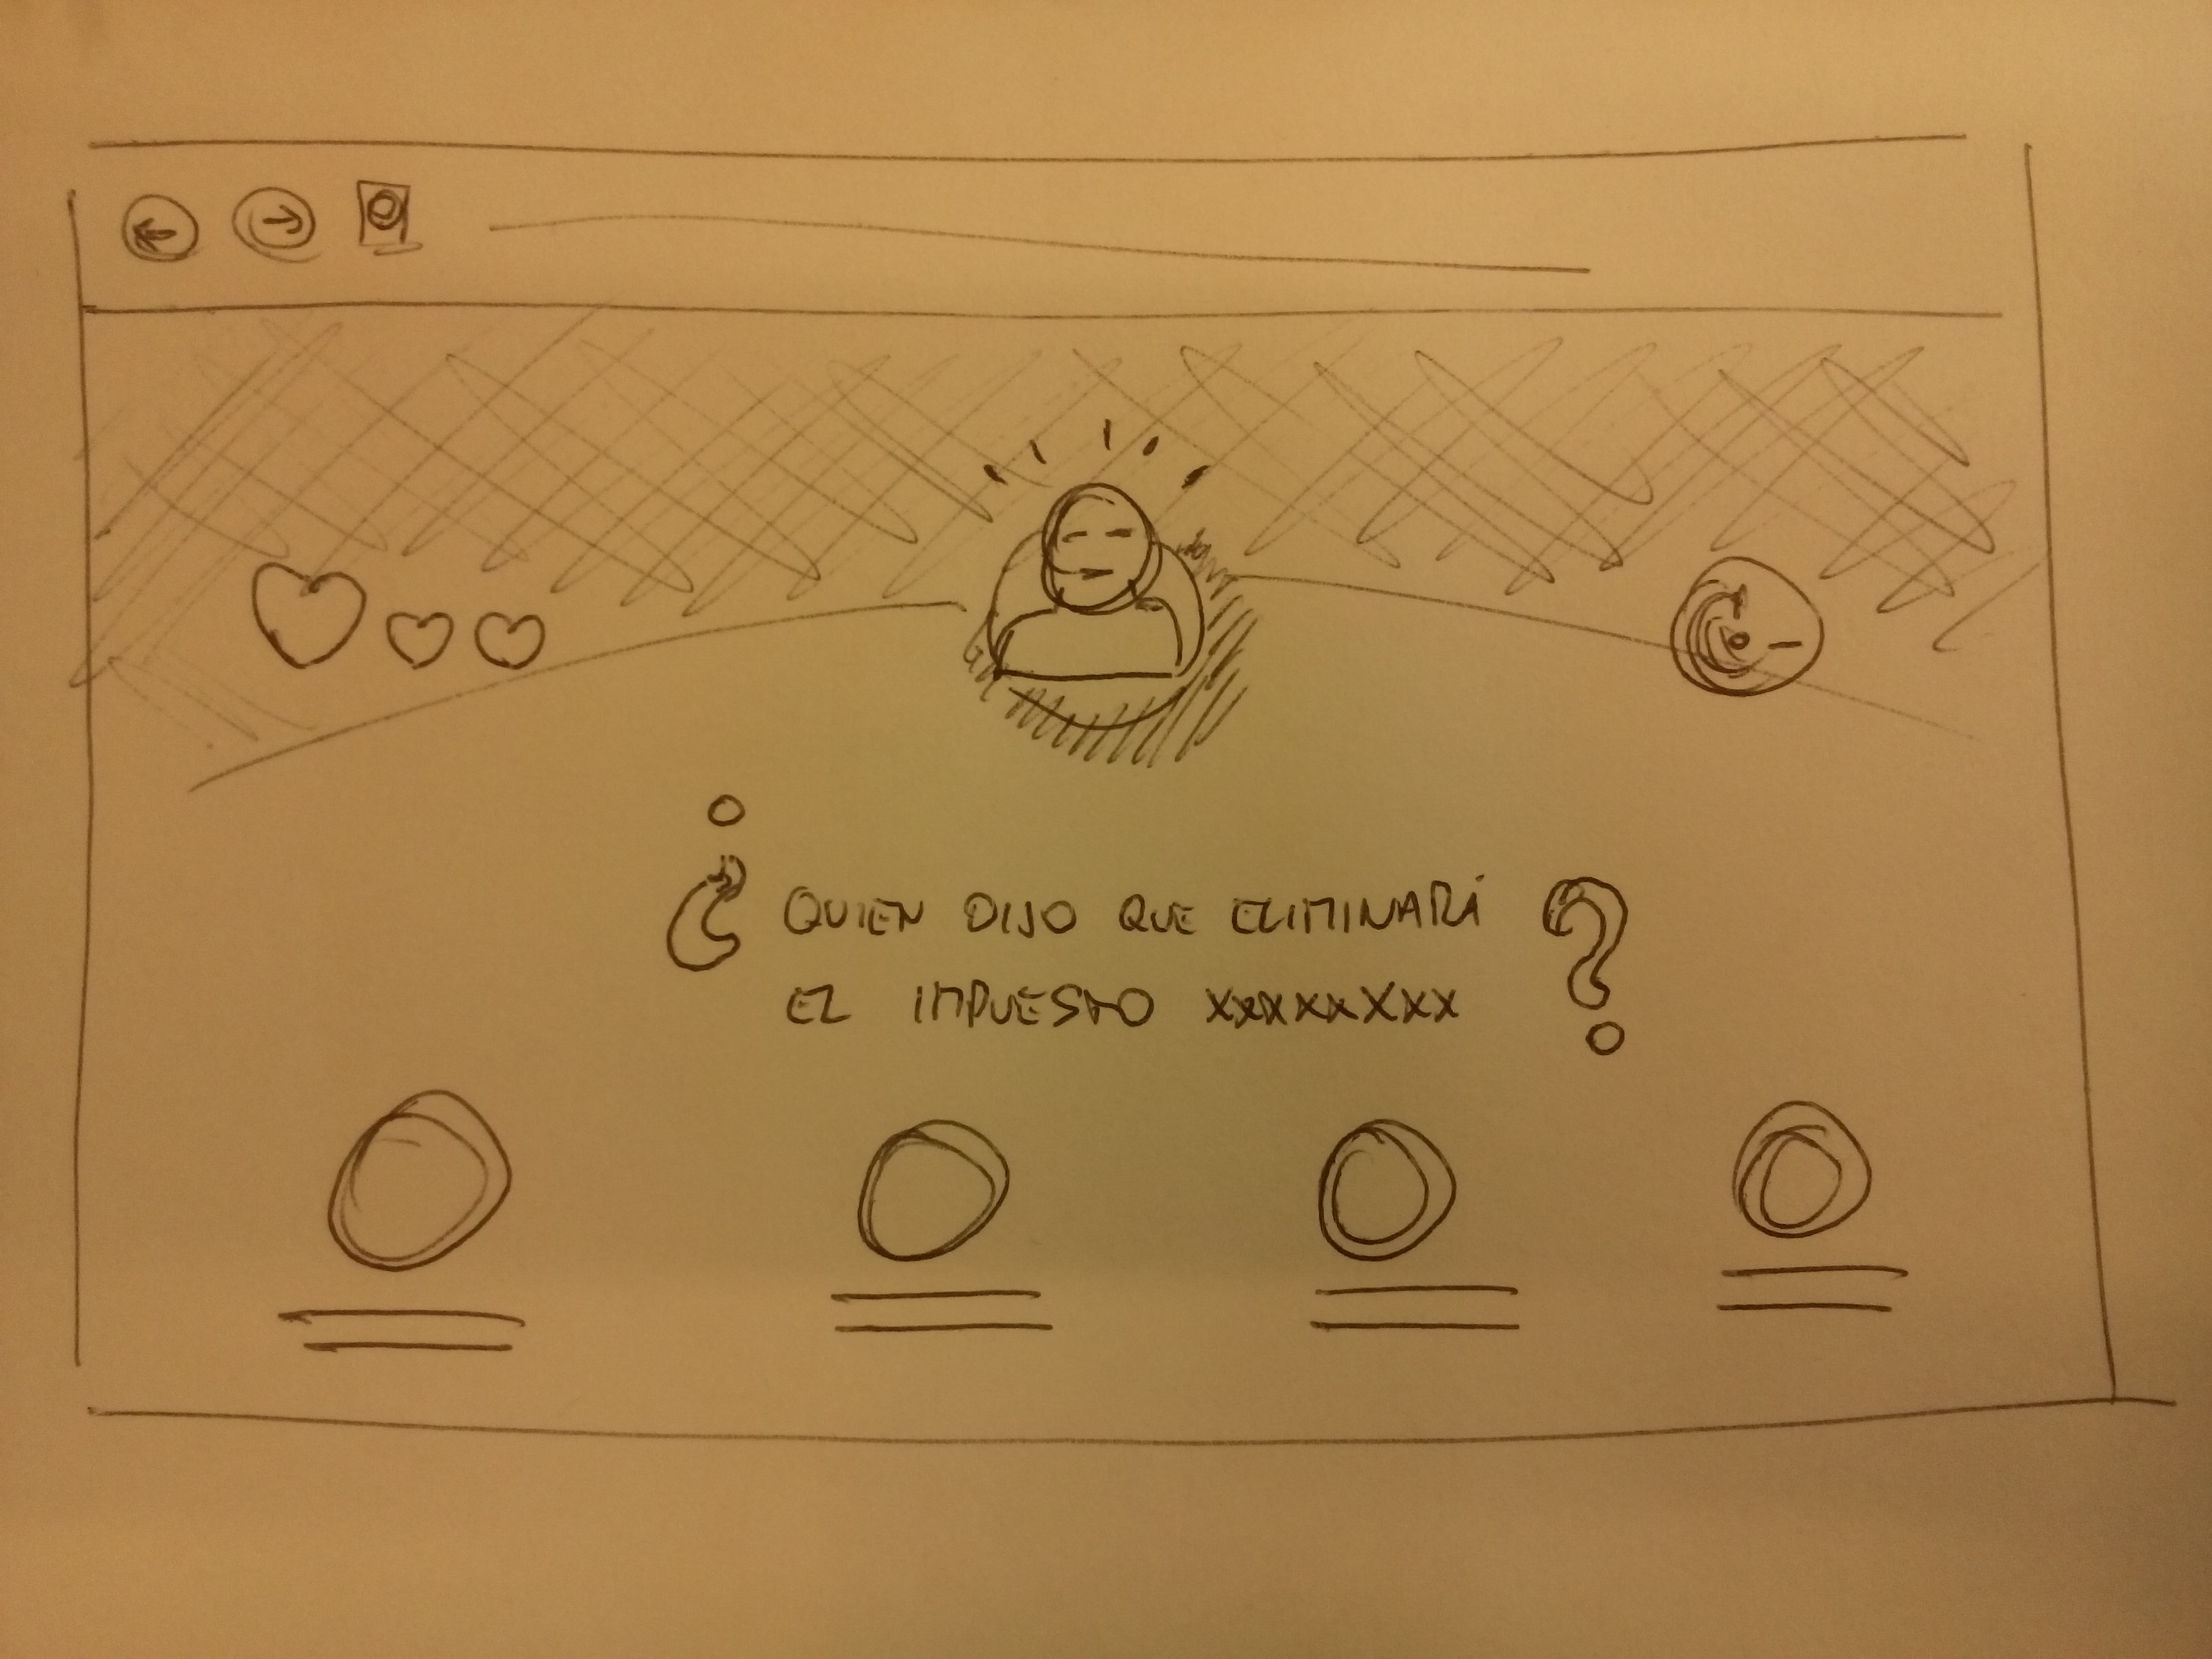 ¿ QUIEN DIJO QUE ELIMINARÁ
EL IMPUESTO XXXXXXXX ?